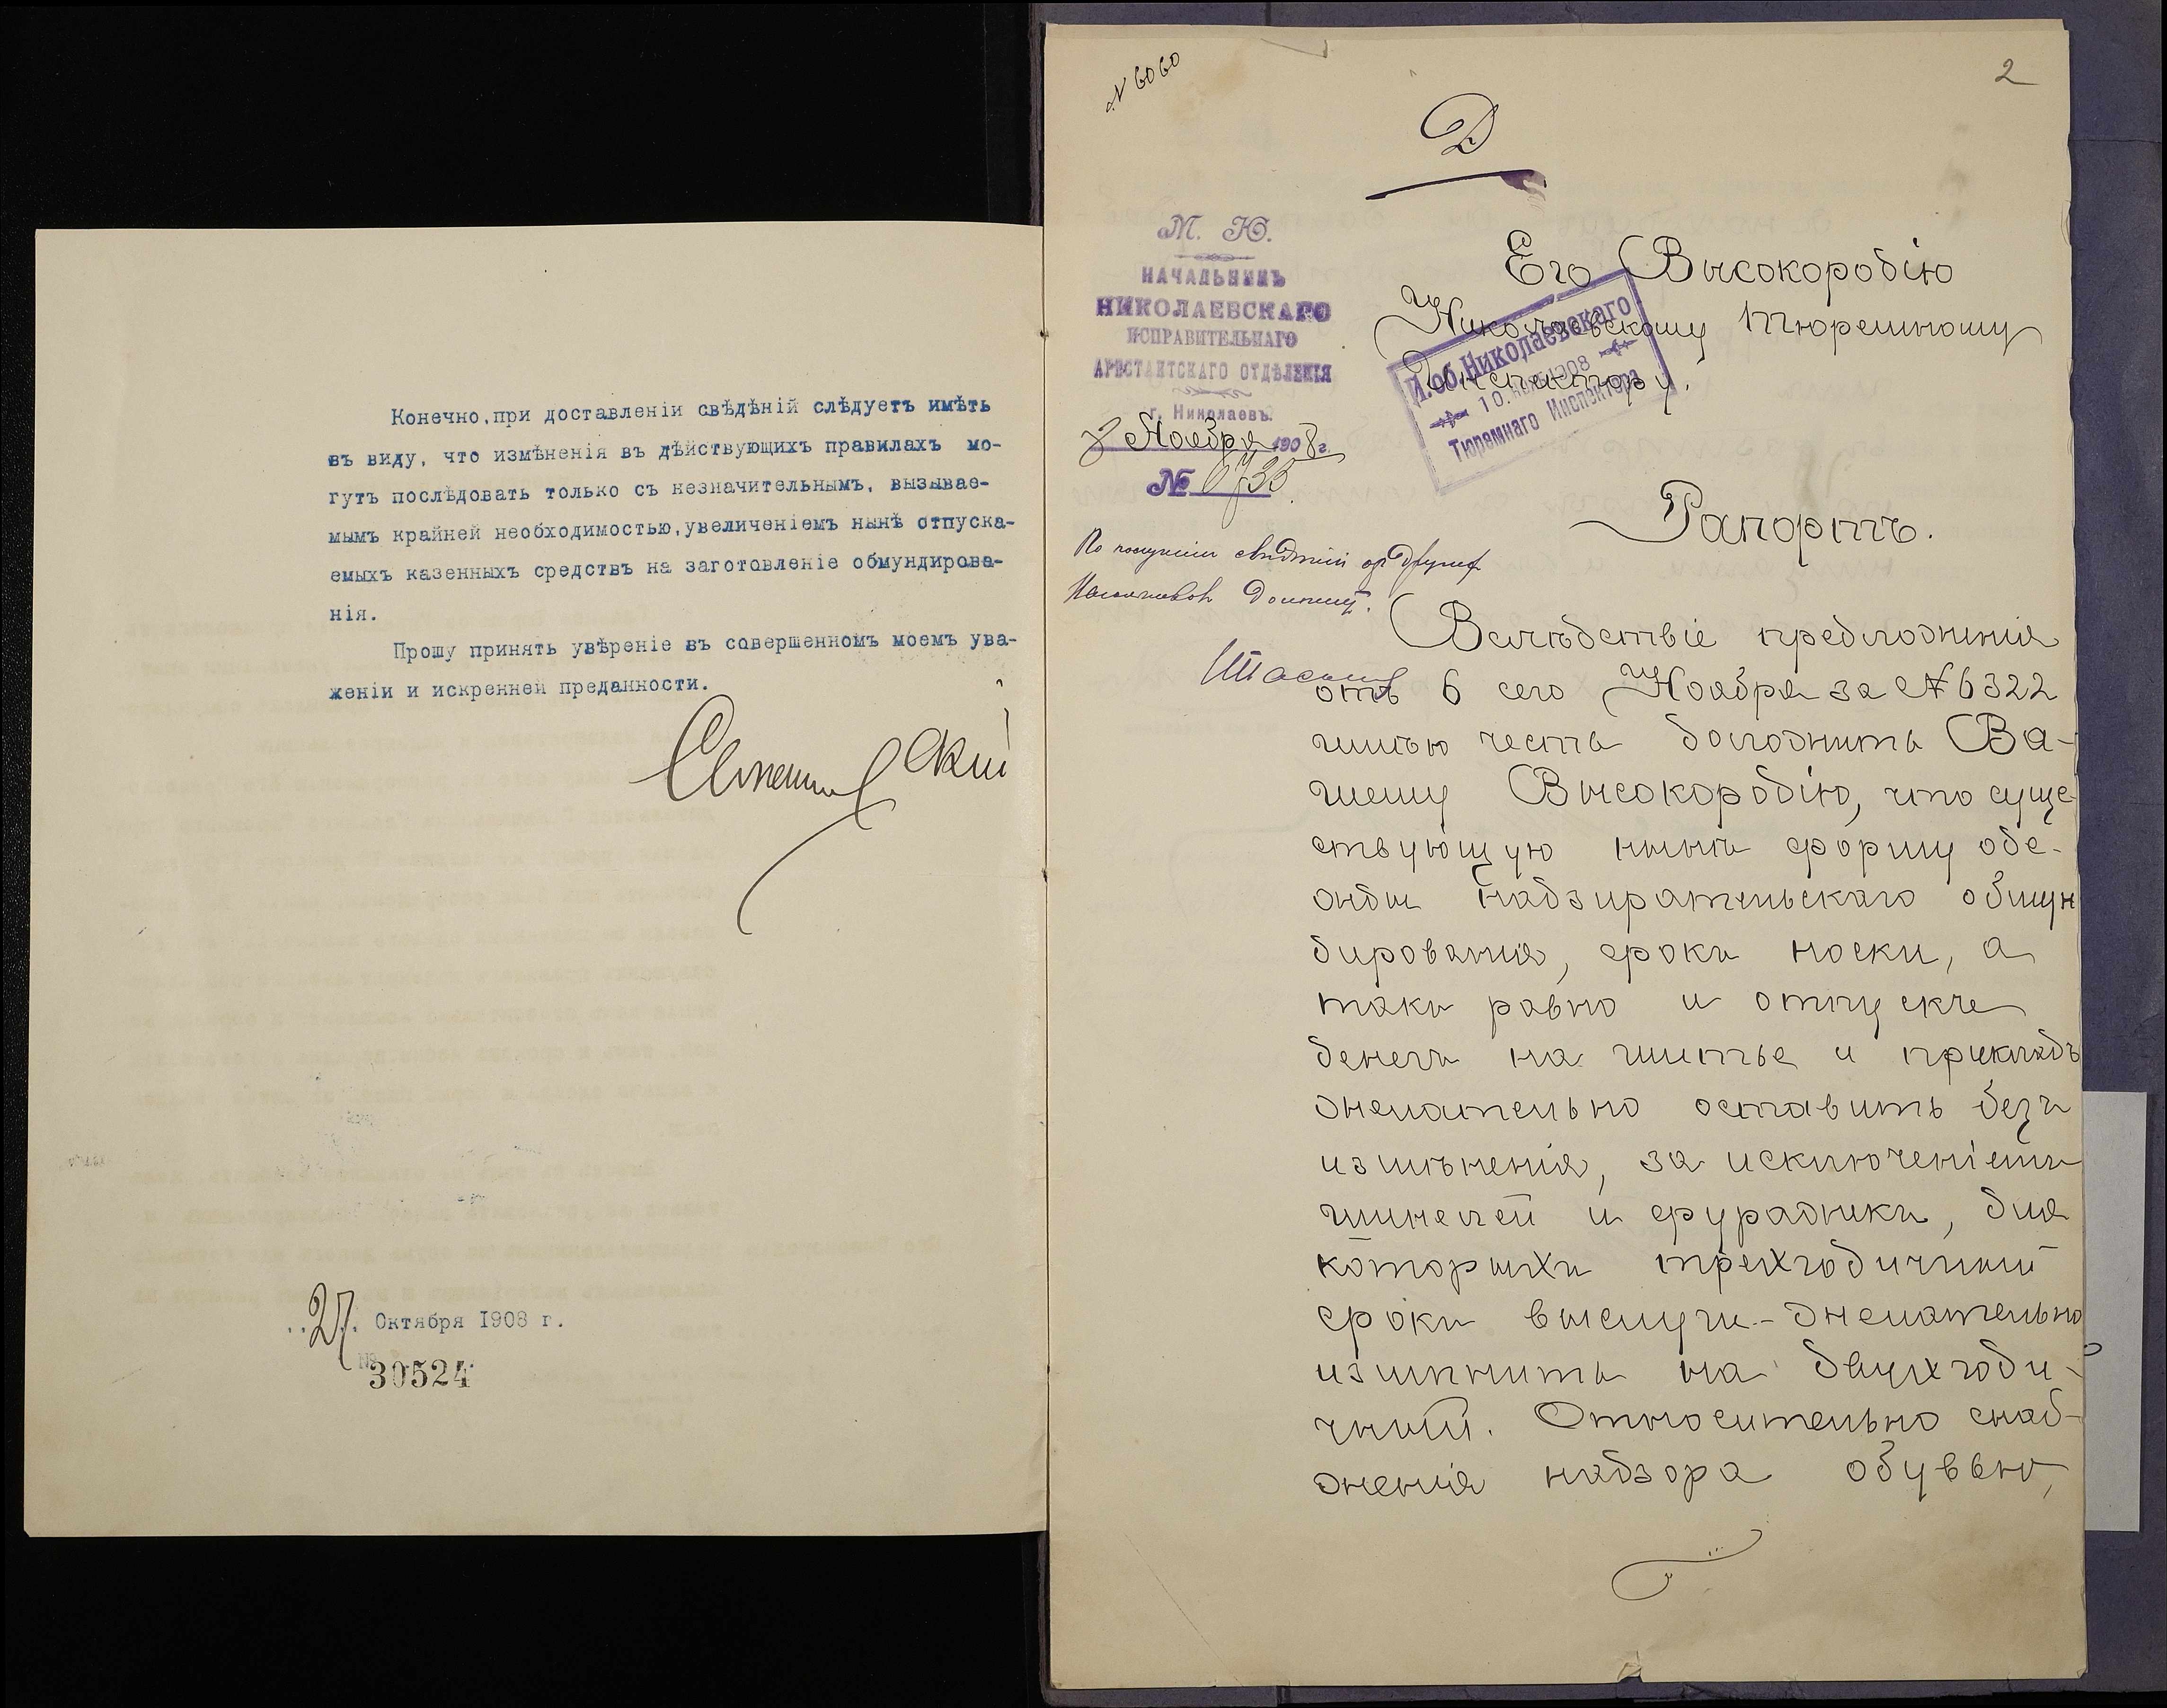 Конечно, при доставленіи свѣдѣній слѣдуетъ имѣть
въ виду, что измѣненія въ дѣйствующихъ правилахъ мо-
гутъ послѣдовать только съ незначительнымъ, вызывае-
мымъ крайней необходимостью, увеличеніемъ нынѣ отпуска-
емыхъ казенныхъ средствъ на заготовленіе обмундирова-
нія.
Прошу принять увѣреніе въ совершенномъ моемъ ува-
женіи и искренней преданности.
27 Октября 1908 г.
№ 30524
№ 6060
2
М. Ю.
НАЧАЛЬНИКЪ
НИКОЛАЕВСКАГО
ИСПРАВИТЕЛЬНАГО
АРЕСТАНТСКАГО ОТДѢЛЕНІЯ
г. Николаевъ.
8 Ноября 1908 г.
№ 6735
Его Высокородію
Николаевскому Тюремному
Инспектору.
И. об. Николаевскаго
10. НОЯБ. 1908
Тюремнаго Инспектора
Рапортъ.
По полученіи свѣдѣній от других
Начальников
Вслѣдствіе предложенія
отъ 6 сего Ноября за № 6322
имѣю честь доложить Ва-
шему Высокородію, что суще-
ствующую нынѣ форму оде-
жды надзирательскаго обмун
дированія, сроки носки, а
такъ равно и отпускъ
денегъ на шитье и прикладъ
желательно оставить безъ
измѣненія, за исключеніемъ
шинелей и фуражки, для
которыхъ трехгодичный
срокъ выслуги - желательно
измѣнить на двухгоди-
чный. Относительно снаб-
женія надзора обувью,